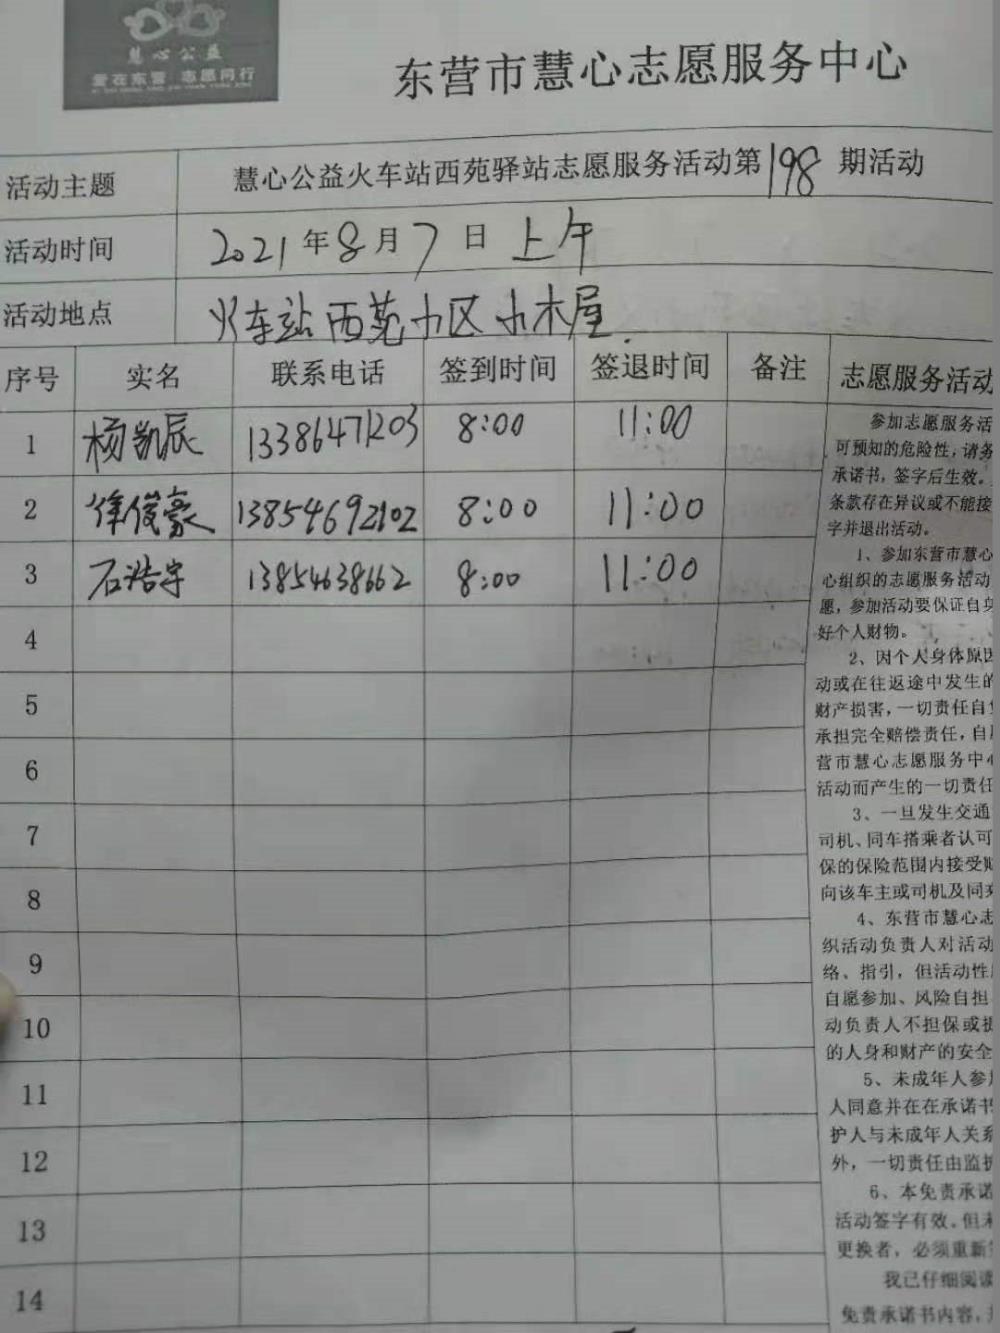 慧心公益
爱在东营 志愿同行
东营市慧心志愿服务中心
活动主题 慧心公益火车站西苑驿站志愿服务活动第198期活动
活动时间 2021年8月7日 上午
活动地点 火车站西苑小区小木屋
序号 实名 联系电话 签到时间 签退时间 备注 志愿服务活动
1 杨凯辰 13386471203 8:00 11:00
2 徐俊豪 13854692102 8:00 11:00
3 石浩宇 13854638662 8:00 11:00
4
5
6
7
8
9
10
11
12
13
14
参加志愿服务活
可预知的危险性，请务
承诺书，签字后生效。
条款存在异议或不能接
字并退出活动。
1、参加东营市慧心
心组织的志愿服务活动
愿，参加活动要保证自身
好个人财物。
2、因个人身体原因
动或在往返途中发生的
财产损害，一切责任自负
承担完全赔偿责任，自
营市慧心志愿服务中心
活动而产生的一切责任
3、一旦发生交通
司机、同车搭乘者认可
保的保险范围内接受赔
向该车主或司机及同来
4、东营市慧心志
织活动负责人对活动
络、指引，但活动性
自愿参加、风险自担
动负责人不担保或提
的人身和财产的安全
5、未成年人参加
人同意并在在承诺书
护人与未成年人关系
外，一切责任由监护
6、本免责承诺
活动签字有效。但未
更换者，必须重新
我已仔细阅读
免责承诺书内容，